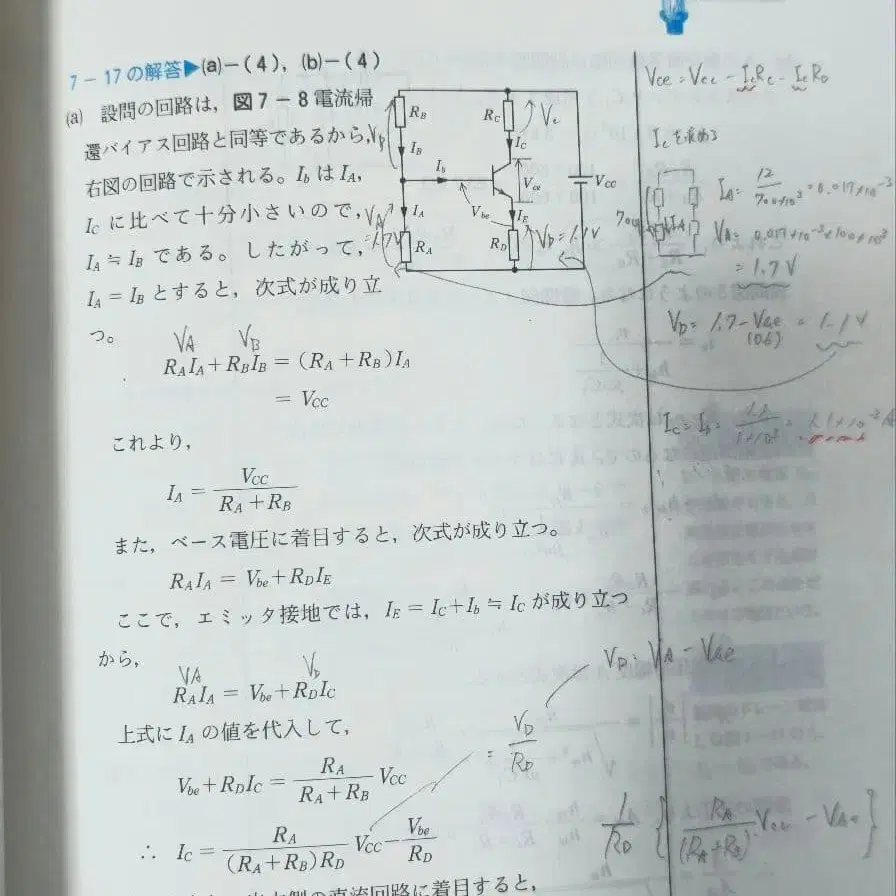 7－17の解答▶(a)－(4)，(b)－(4)
(a) 設問の回路は，図7－8電流帰
還バイアス回路と同等であるから，
右図の回路で示される。IbはIA，
ICに比べて十分小さいので，
IA≒IBである。したがって，
IA＝IBとすると，次式が成り立
つ。
RB
RC
VC
VB
IB
IC
Ib
Vce
VCC
Vbe
IA
IE
VA
=1.7V
RA
RD
VD=1.1V
VA VB
RAIA+RBIB = (RA+RB)IA
= VCC
これより，
IA = VCC / (RA+RB)
また，ベース電圧に着目すると，次式が成り立つ。
RAIA = Vbe+RDIE
ここで，エミッタ接地では，IE = IC+Ib ≒ IC が成り立つ
から，
VA VD
RAIA = Vbe+RDIC
上式にIAの値を代入して，
Vbe+RDIC = RA / (RA+RB) VCC
∴ IC = RA / ((RA+RB)RD) VCC − Vbe / RD
側の直流回路に着目すると，
Vce = Vcc - IcRc - IcRD
Icを求める
IA = 12 / 700×10³ = 0.017×10⁻³
VA = 0.017×10⁻³×100×10³
= 1.7V
VD = 1.7 - Vbe = 1.1V
(0.6)
= 1.1×10⁻³A
VD = VA - Vbe
= VD / RD
1 / RD { RA / (RA+RB) Vcc - Vbe }